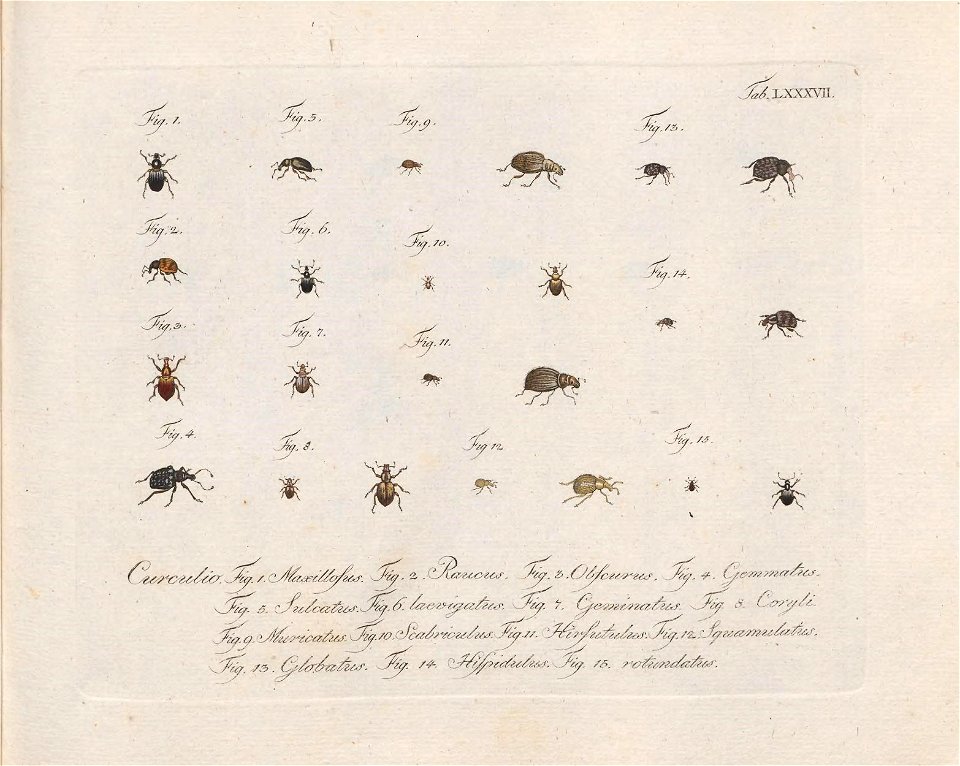 Tab. LXXXVII.
Fig. 1.
Fig. 5.
Fig. 9.
Fig. 13.
Fig. 2.
Fig. 6.
Fig. 10.
Fig. 14.
Fig. 3.
Fig. 7.
Fig. 11.
Fig. 4.
Fig. 8.
Fig 12
Fig. 15.
Curculio. Fig. 1. Maxillosus. Fig. 2. Raucus. Fig. 3. Obscurus. Fig. 4. Gemmatus.
Fig. 5. Sulcatus. Fig. 6. laevigatus. Fig. 7. Geminatus. Fig 8. Coryli
Fig. 9. Muricatus. Fig. 10. Scabriculus. Fig. 11. Hirsutulus. Fig. 12. Squamulatus.
Fig. 13. Globatus. Fig. 14 Hispidulus. Fig. 15. rotundatus.